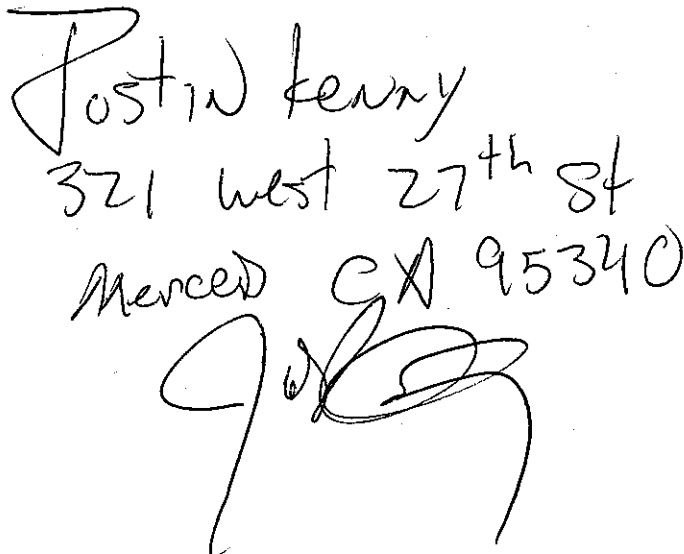 Justin Kenny
321 West 27th St
Merced CA 95340